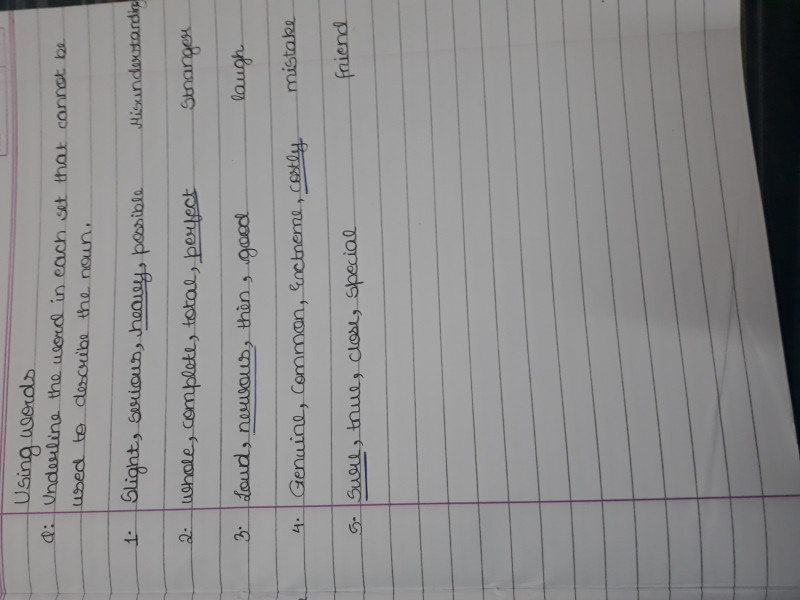 Using words
Q: Underline the word in each set that cannot be
used to describe the noun.
1. Slight, serious, heavy, possible Misunderstanding
2. whole, complete, total, perfect Stranger
3. Loud, nervous, thin, good laugh
4. Genuine, Common, Enctreme, costly mistake
5. Sure, true, close, special friend